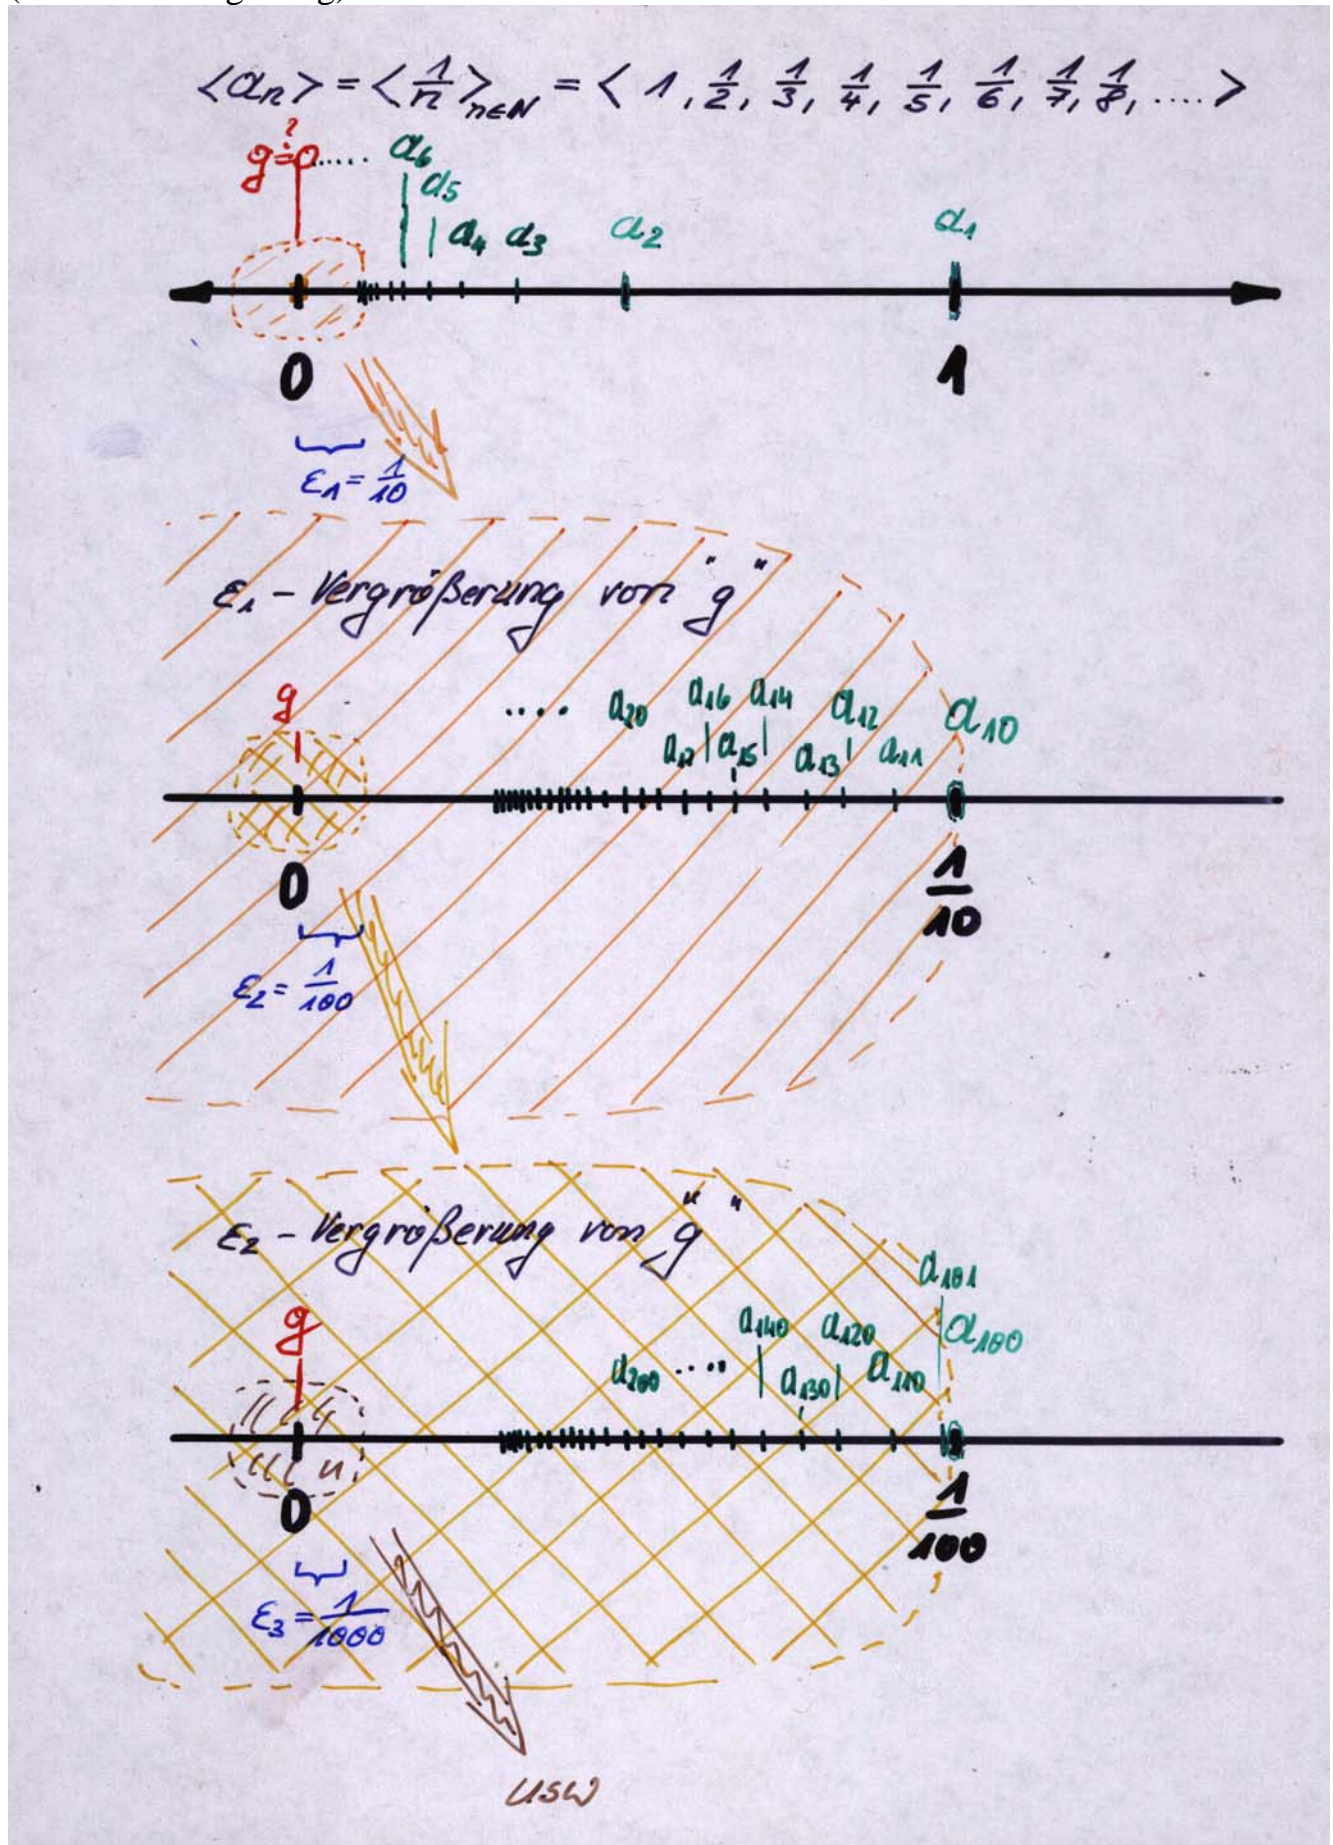 ⟨aₙ⟩ = ⟨1/n⟩ n∈N = ⟨ 1, 1/2, 1/3, 1/4, 1/5, 1/6, 1/7, 1/8, .... ⟩
g =? 0 ..... a₆
a₅
a₄ a₃ a₂ a₁
0 1
ε₁ = 1/10
ε₁ - Vergrößerung von "g"
g .... a₂₀ a₁₆ a₁₄ a₁₂ a₁₀
a₁₇ a₁₅ a₁₃ a₁₁
0 1/10
ε₂ = 1/100
ε₂ - Vergrößerung von "g"
a₁₀₁
g a₁₄₀ a₁₂₀ a₁₀₀
a₂₀₀ .... a₁₃₀ a₁₁₀
0 1/100
ε₃ = 1/1000
usw